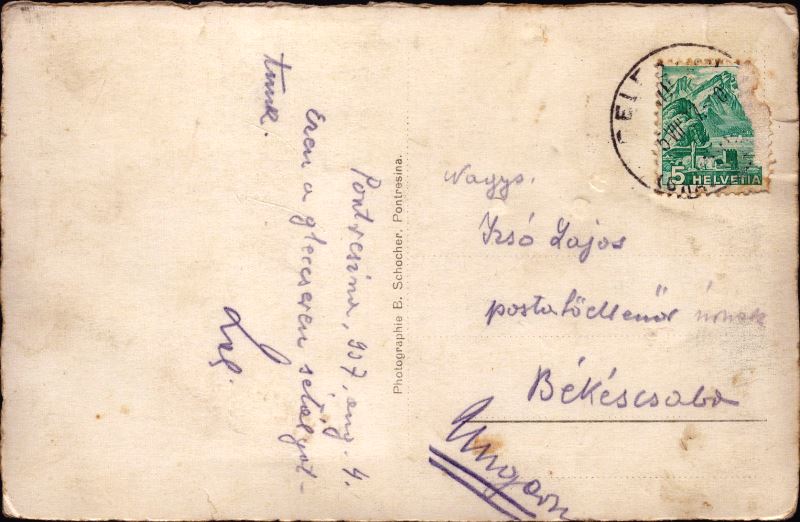 Pontresina, 937, aug. 4.
Ezen a gleccseren sétálgat-
tunk.
Photographie B. Schocher, Pontresina.
5 HELVETIA
Nagys.
Izsó Lajos
postafőellenőr úrnak
Békéscsaba
Ungarn